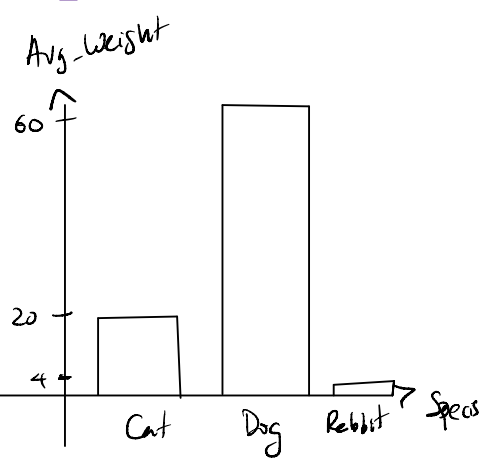 Avg_Weight
60
20
4
Cat
Dog
Rebbit
Specis